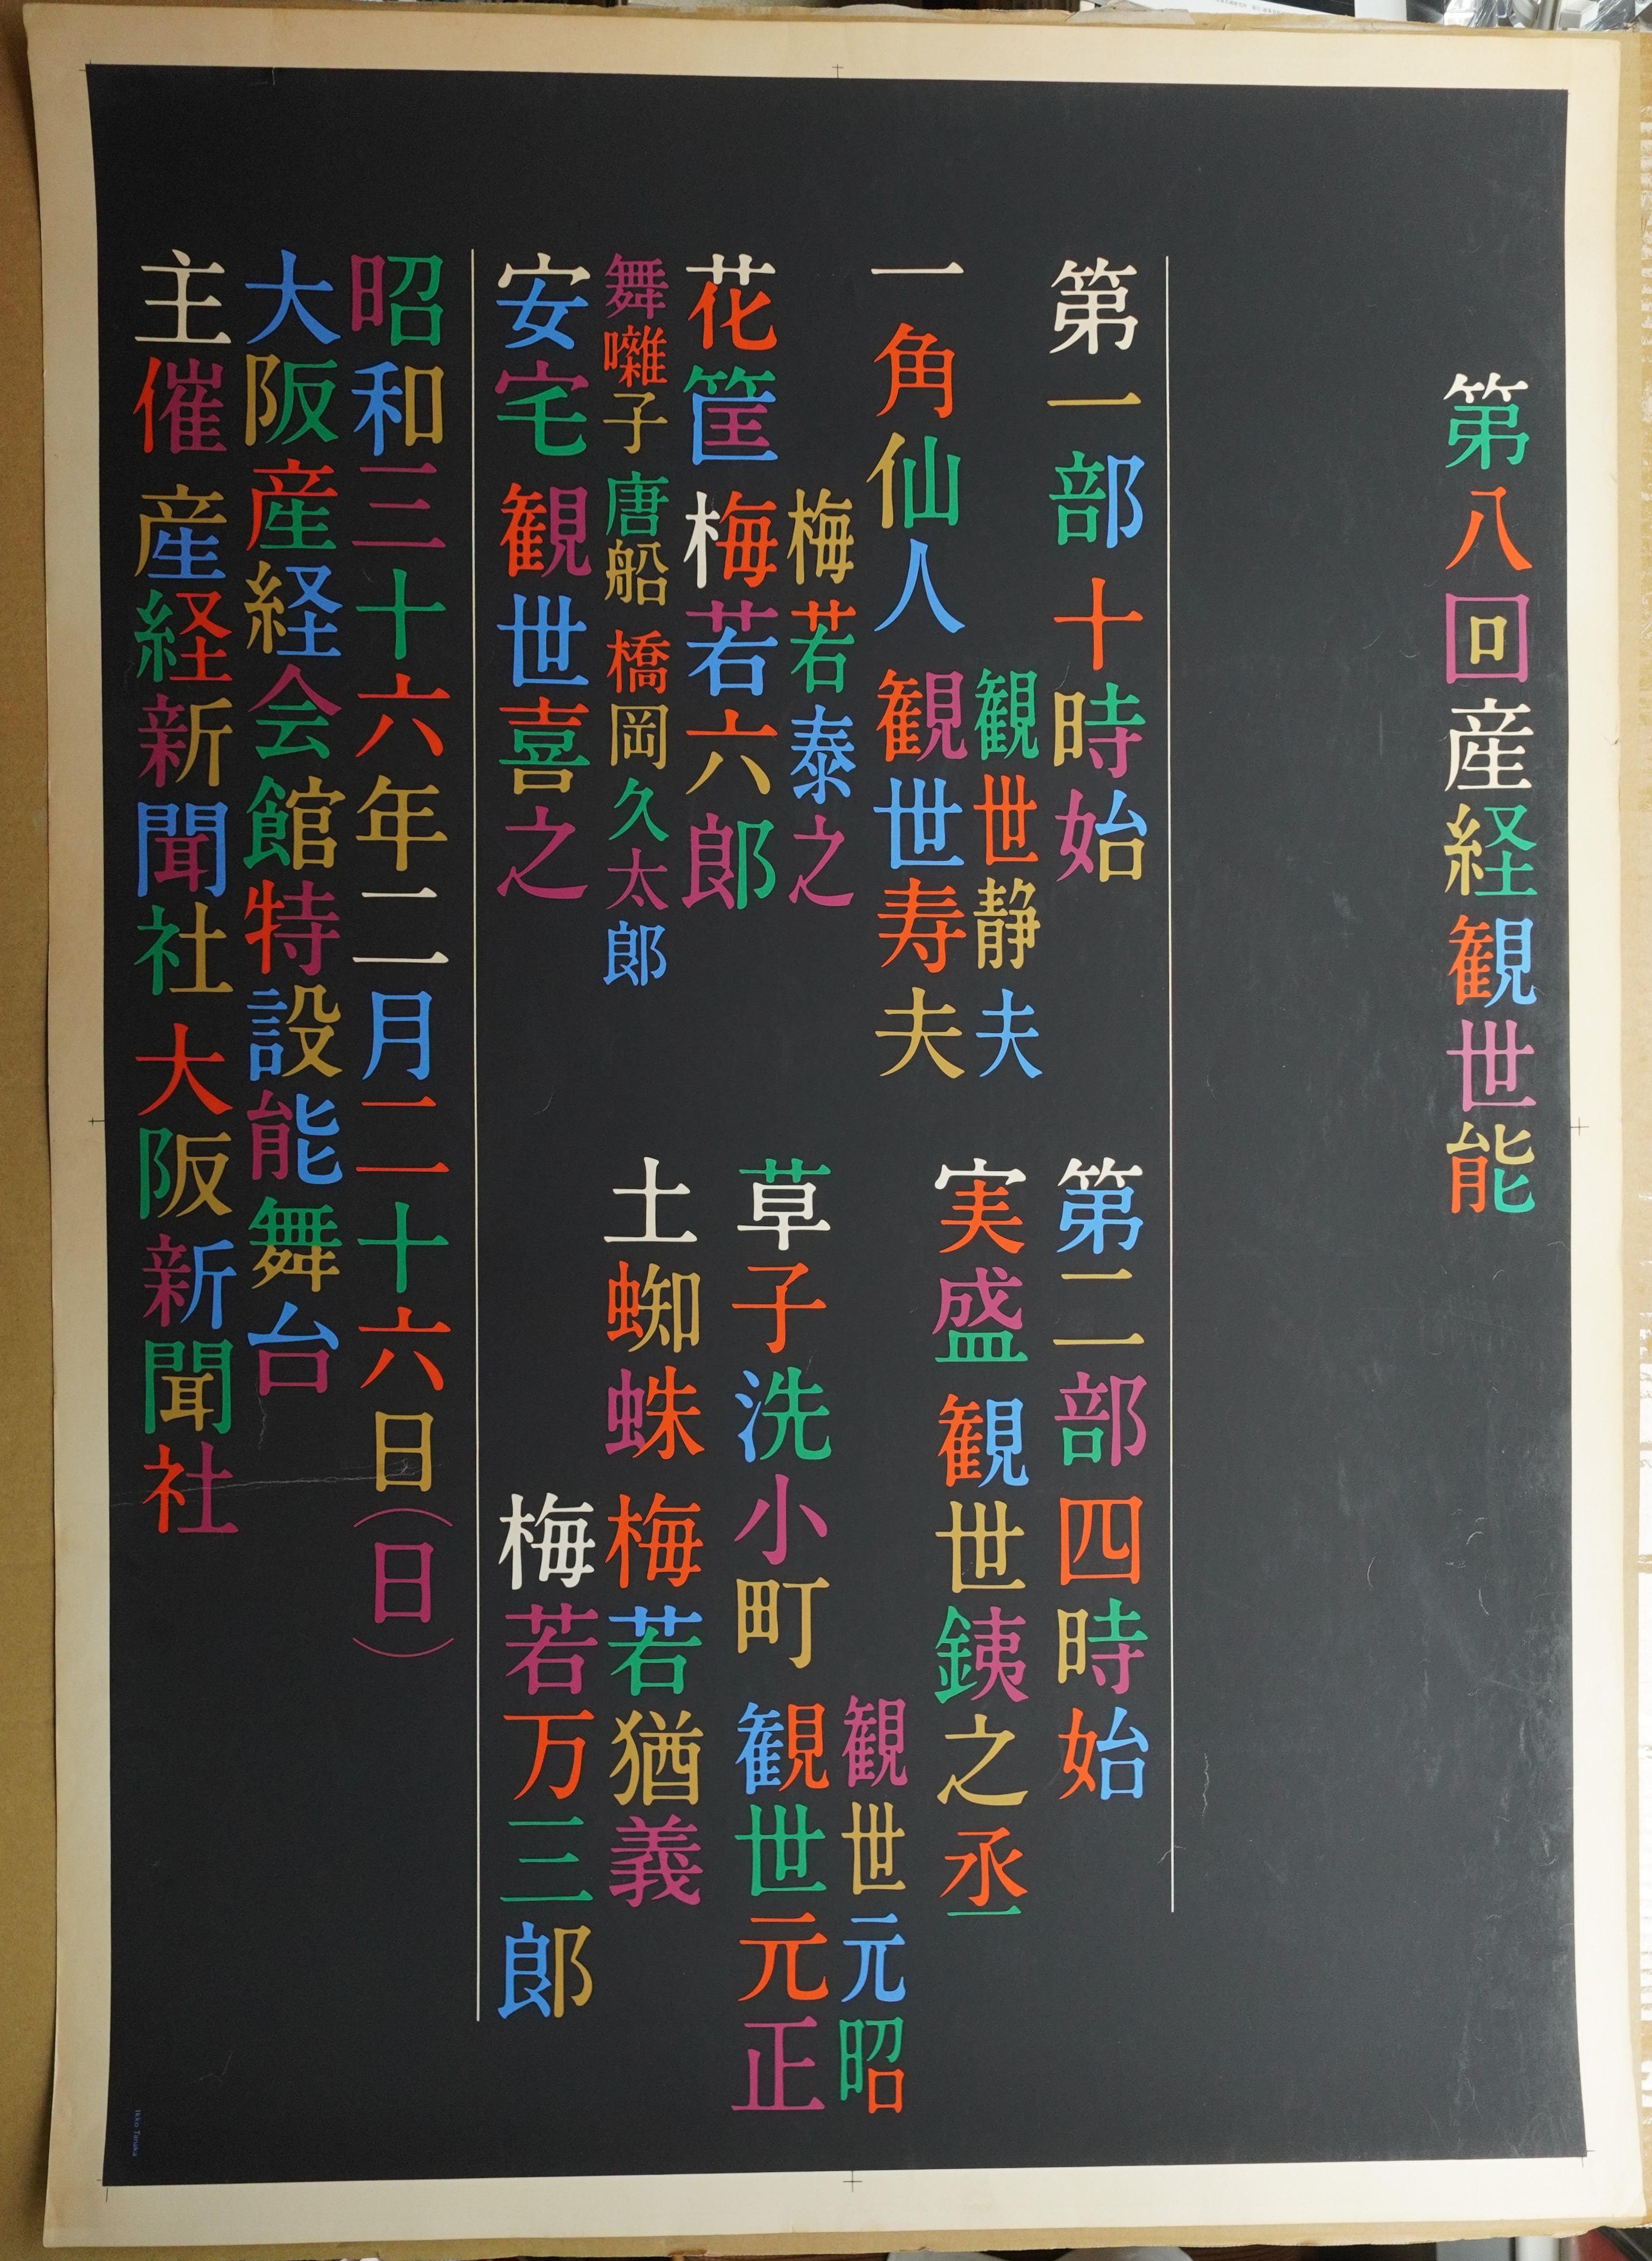 第八回産経観世能
第一部 十時始
一角仙人 観世寿夫
観世静夫
花筐 梅若六郎
梅若泰之
舞囃子 唐船 橋岡久太郎
安宅 観世喜之
第二部 四時始
実盛 観世銕之丞
草子洗小町 観世元正
観世元昭
土蜘蛛 梅若猶義
梅若万三郎
昭和三十六年二月二十六日(日)
大阪産経会館特設能舞台
主催 産経新聞社 大阪新聞社
Ikko Tanaka